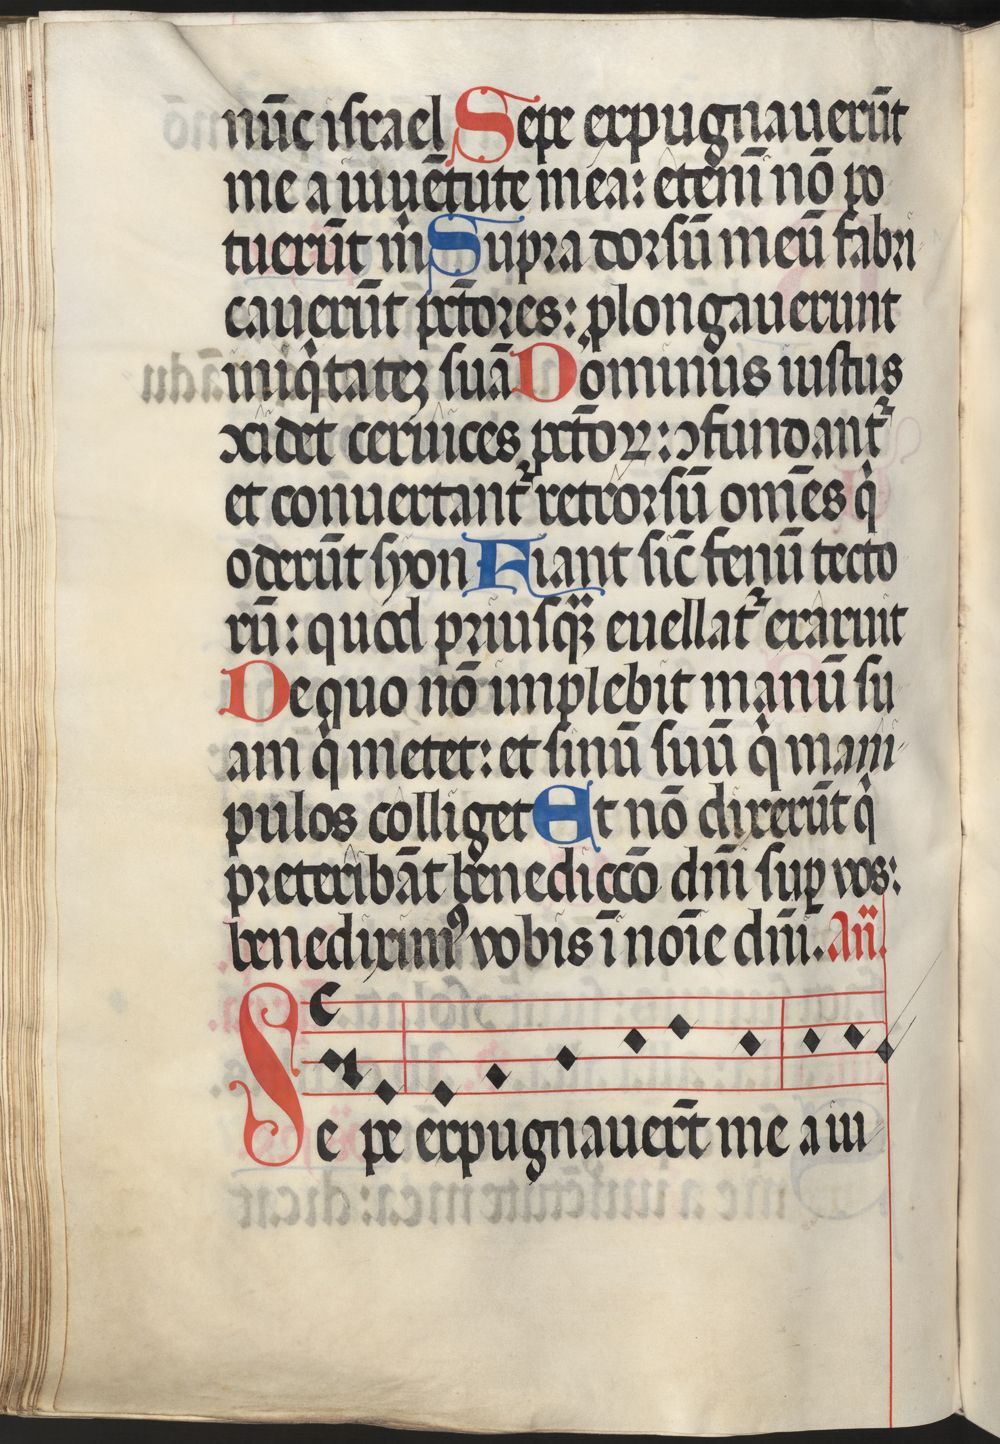 nūc israel Sepe expugnauerūt
me a iuuētute mea: etenī nō po
tuerūt m̄ Supra dorsū meū fabri
cauerūt pctōres: plongauerunt
iniqͥtatez suā Dominus iustus
ꝯcidet ceruices pctōꝝ: ↄfundantᷣ
et conuertantᷣ retrorsū om̄es qͥ
oderūt syon Fiant sic̄ fenū tecto
rū: quod priusqꝫ euellatᷣ exaruit
De quo nō implebit manū su
am qͥ metet: et sinū suū qͥ mani
pulos colliget Et nō dixerūt qͥ
preteribāt benediccō dn̄i suꝑ vos:
benediximꝰ vobis ī noīe dn̄i. Añ.
Se pe expugnauert̄ me a iu